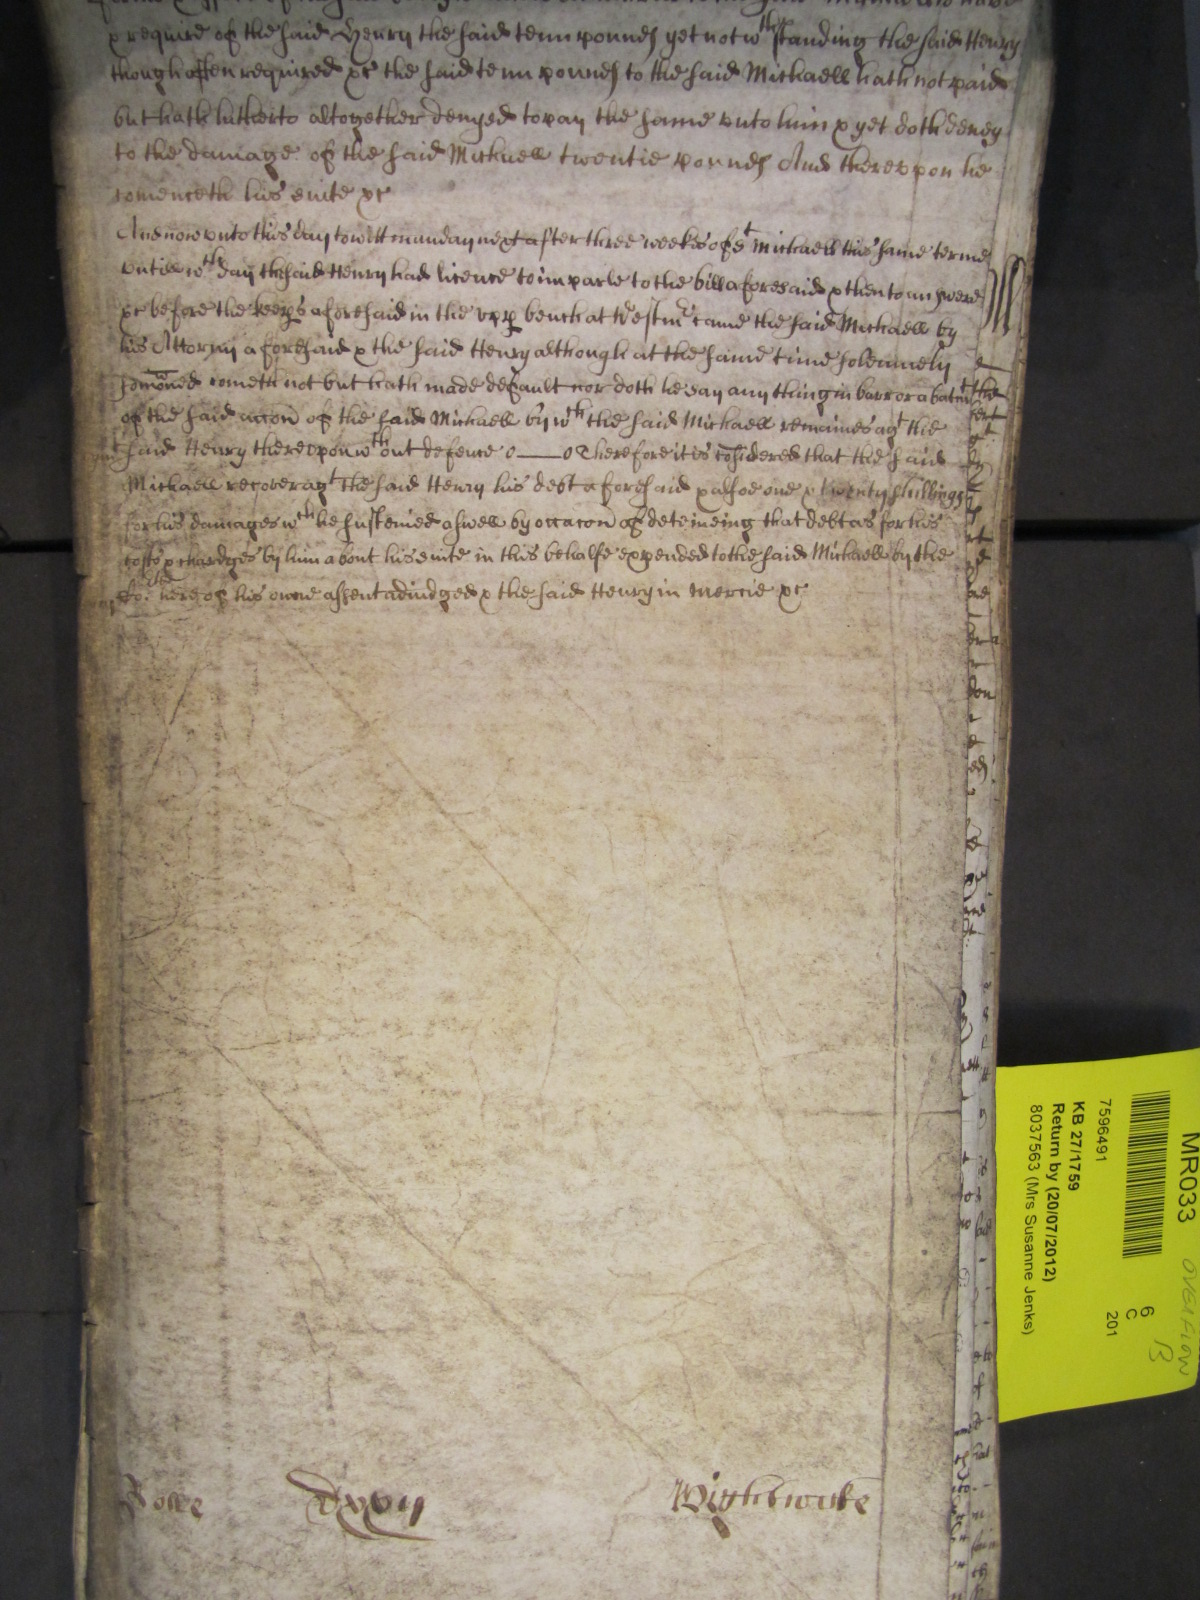 & require of the said Henry the said tenn pounds yet notwthstanding the said Henry
though often required &c the said tenn pounds to the said Michaell hath not paid
but hath hitherto altogether denyed to pay the same vnto him & yet doth deney
to the damage of the said Michaell twentie pounds And therevpon he
comenceth his suite &c
And now vnto this day to witt munday next after three weekes of st Michaell this same terme
vntill wch day the said Henry had licence to imparle to the bill aforesaid & then to answere
&c before the keeps aforesaid in the vpp bench at Westmr came the said Michaell by
his Attorny aforesaid & the said Henry although at the same time solemnely
somoned cometh not but hath made default nor doth he say any thing in barr or abatemt
of the said accon of the said Michaell by wch the said Michaell remaines agt the
said Henry therevpon wthout defence o——o Therefore it is cosidered that the said
Michaell recover agt the said Henry his debt aforesaid & alsoe one & twenty shillings
for his damages wch he susteined aswell by occacon of deteineing that debt as for his
costs & chardges by him about his suite in this behalfe expended to the said Michaell by the
here of his owne assent adiudged & the said Henry in mercie &c
Rolle
dxxij
Wightwicke
MR033
OVERFLOW
B
6
C
201
7596491
KB 27/1759
Return by (20/07/2012)
8037563 (Mrs Susanne Jenks)